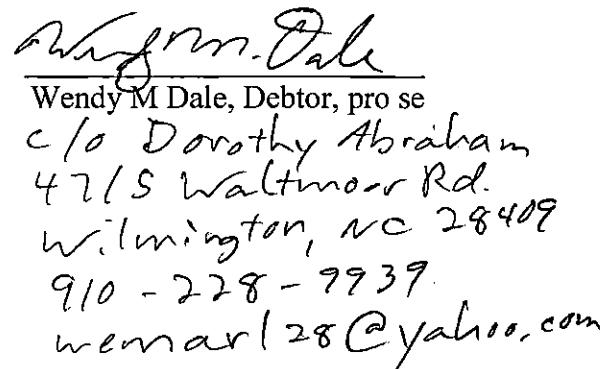 Wendy M. Dale
Wendy M Dale, Debtor, pro se
c/o Dorothy Abraham
4715 Waltmoor Rd.
Wilmington, NC 28409
910-228-9939
wemar128@yahoo.com